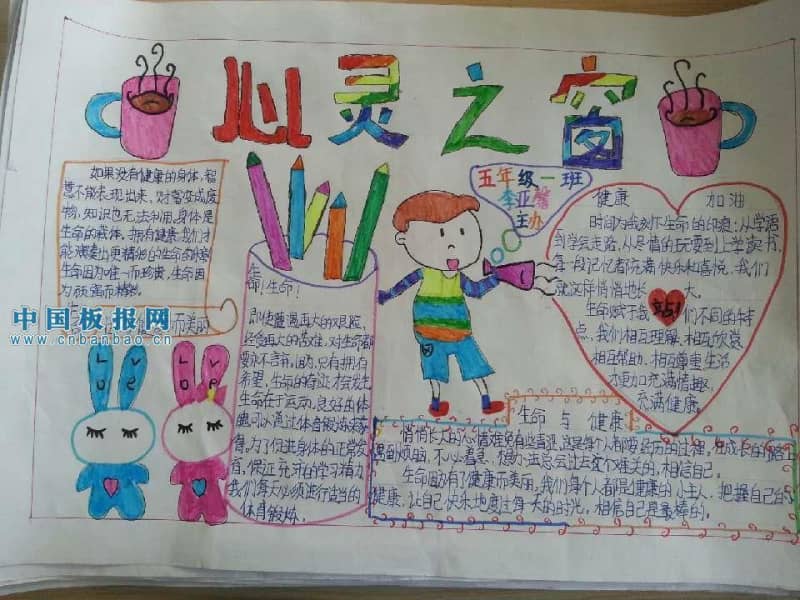 心灵之窗
五年级一班
李亚馨
主办
如果没有健康的身体,智
慧不能表现出来,才富变成废
物,知识也无法利用,身体是
生命的载体。拥有健康,我们才
能演奏出更精彩的生命的
生命因为唯一而珍贵,生命因
为顽强而精彩。
而美丽
中国板报网
www.cnbanbao.cn
LOVE
LOVE
生
命!生命!
即使遭遇再大的艰险,
经受再大的苦难,对生命都
要永不言弃。因为,只有拥有
希望,生命的奇迹才会发生。
生命在于运动,良好的体
魄可以通过体育锻炼来获
得。为了促进身体的正常发
育,保证充沛的学习精力,
我们每天必须进行适当的
体育锻炼。
健康 加油
时间为我刻下生命的印痕:从学语
到学会走路,从尽情的玩耍到上学读书,
每一段记忆都充满快乐和喜悦,我们
就这样悄悄地长大。
生命赋予我们不同的特
点,我们相互理解、相互欣赏
相互帮助、相互尊重生活
才更加充满情趣,
充满健康。
生命与健康
悄悄长大的心情难免有些喜悲,这是每个人都要经历的过程,在成长的路上
遇到烦恼,不心灵,想办法总会过去这个难关的,相信自己。
生命因为有了健康而美丽,我们每个人都是健康的小主人,把握自己的
健康,让自己快乐地度过每天的时光,相信自己是最棒的。